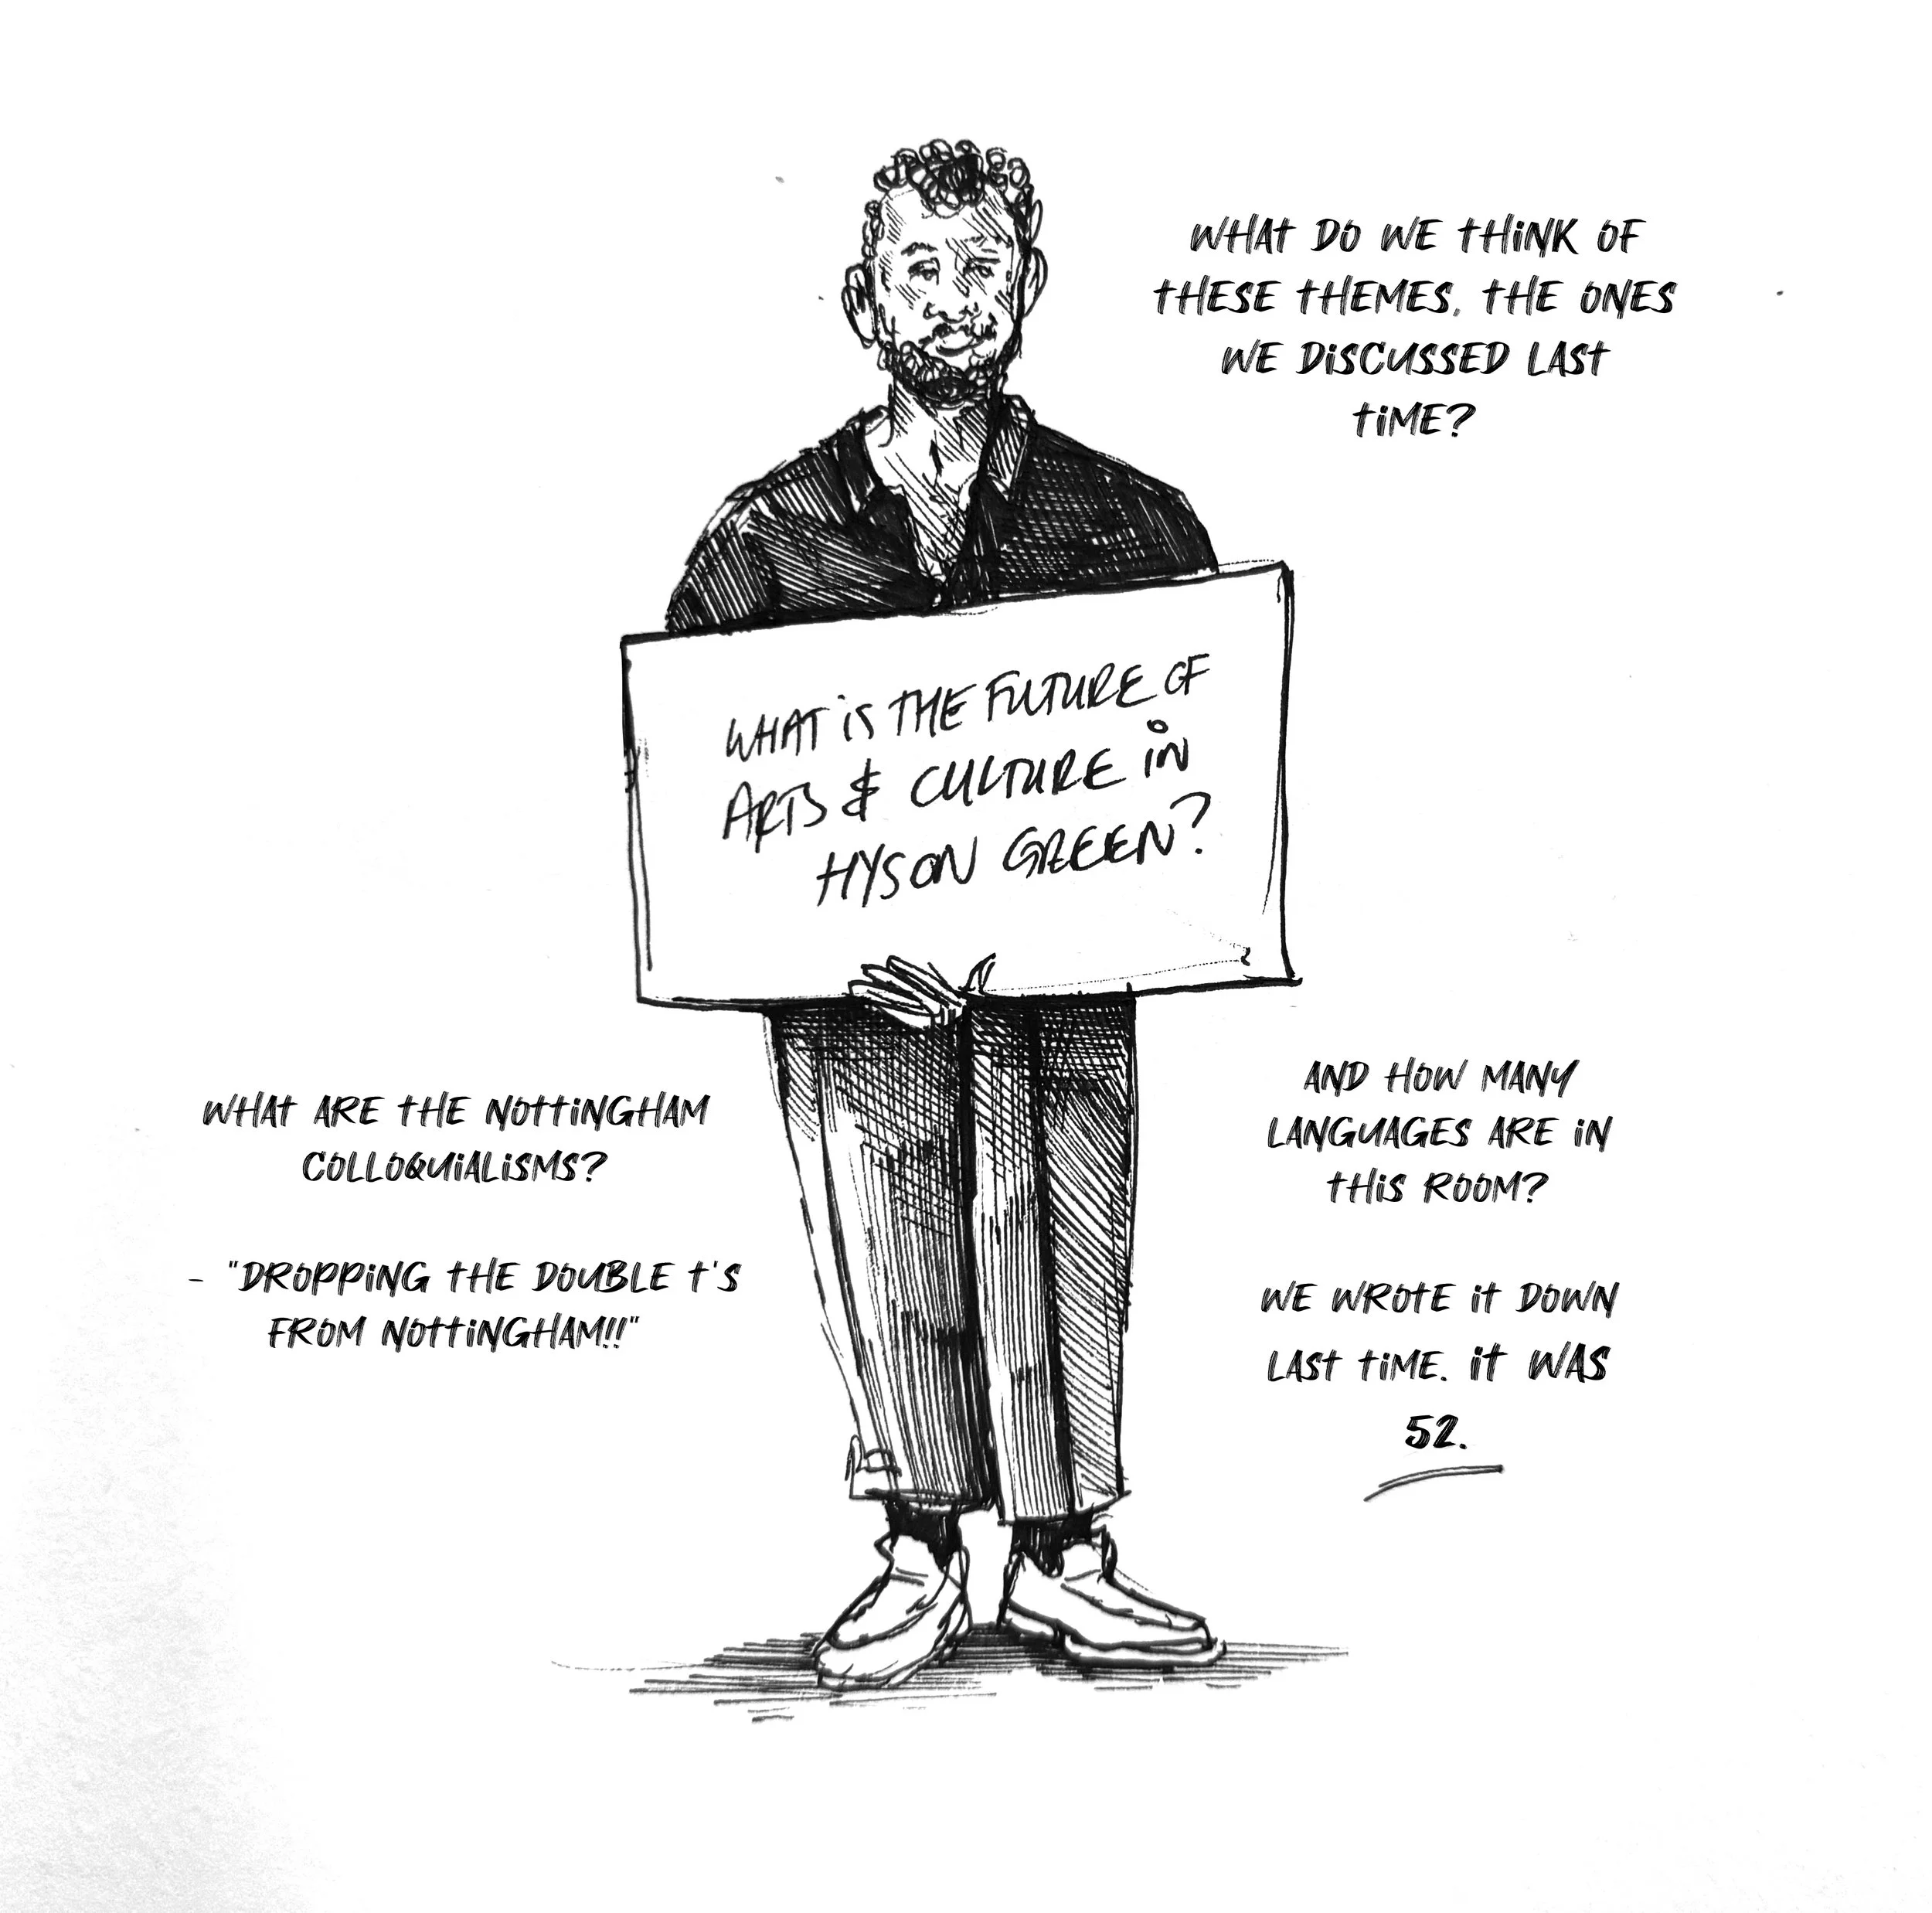 WHAT DO WE THINK OF
THESE THEMES, THE ONES
WE DISCUSSED LAST
TIME?
WHAT IS THE FUTURE OF
ARTS & CULTURE IN
HYSON GREEN?
WHAT ARE THE NOTTINGHAM
COLLOQUIALISMS?
- "DROPPING THE DOUBLE T'S
FROM NOTTINGHAM!!"
AND HOW MANY
LANGUAGES ARE IN
THIS ROOM?
WE WROTE IT DOWN
LAST TIME. IT WAS
52.